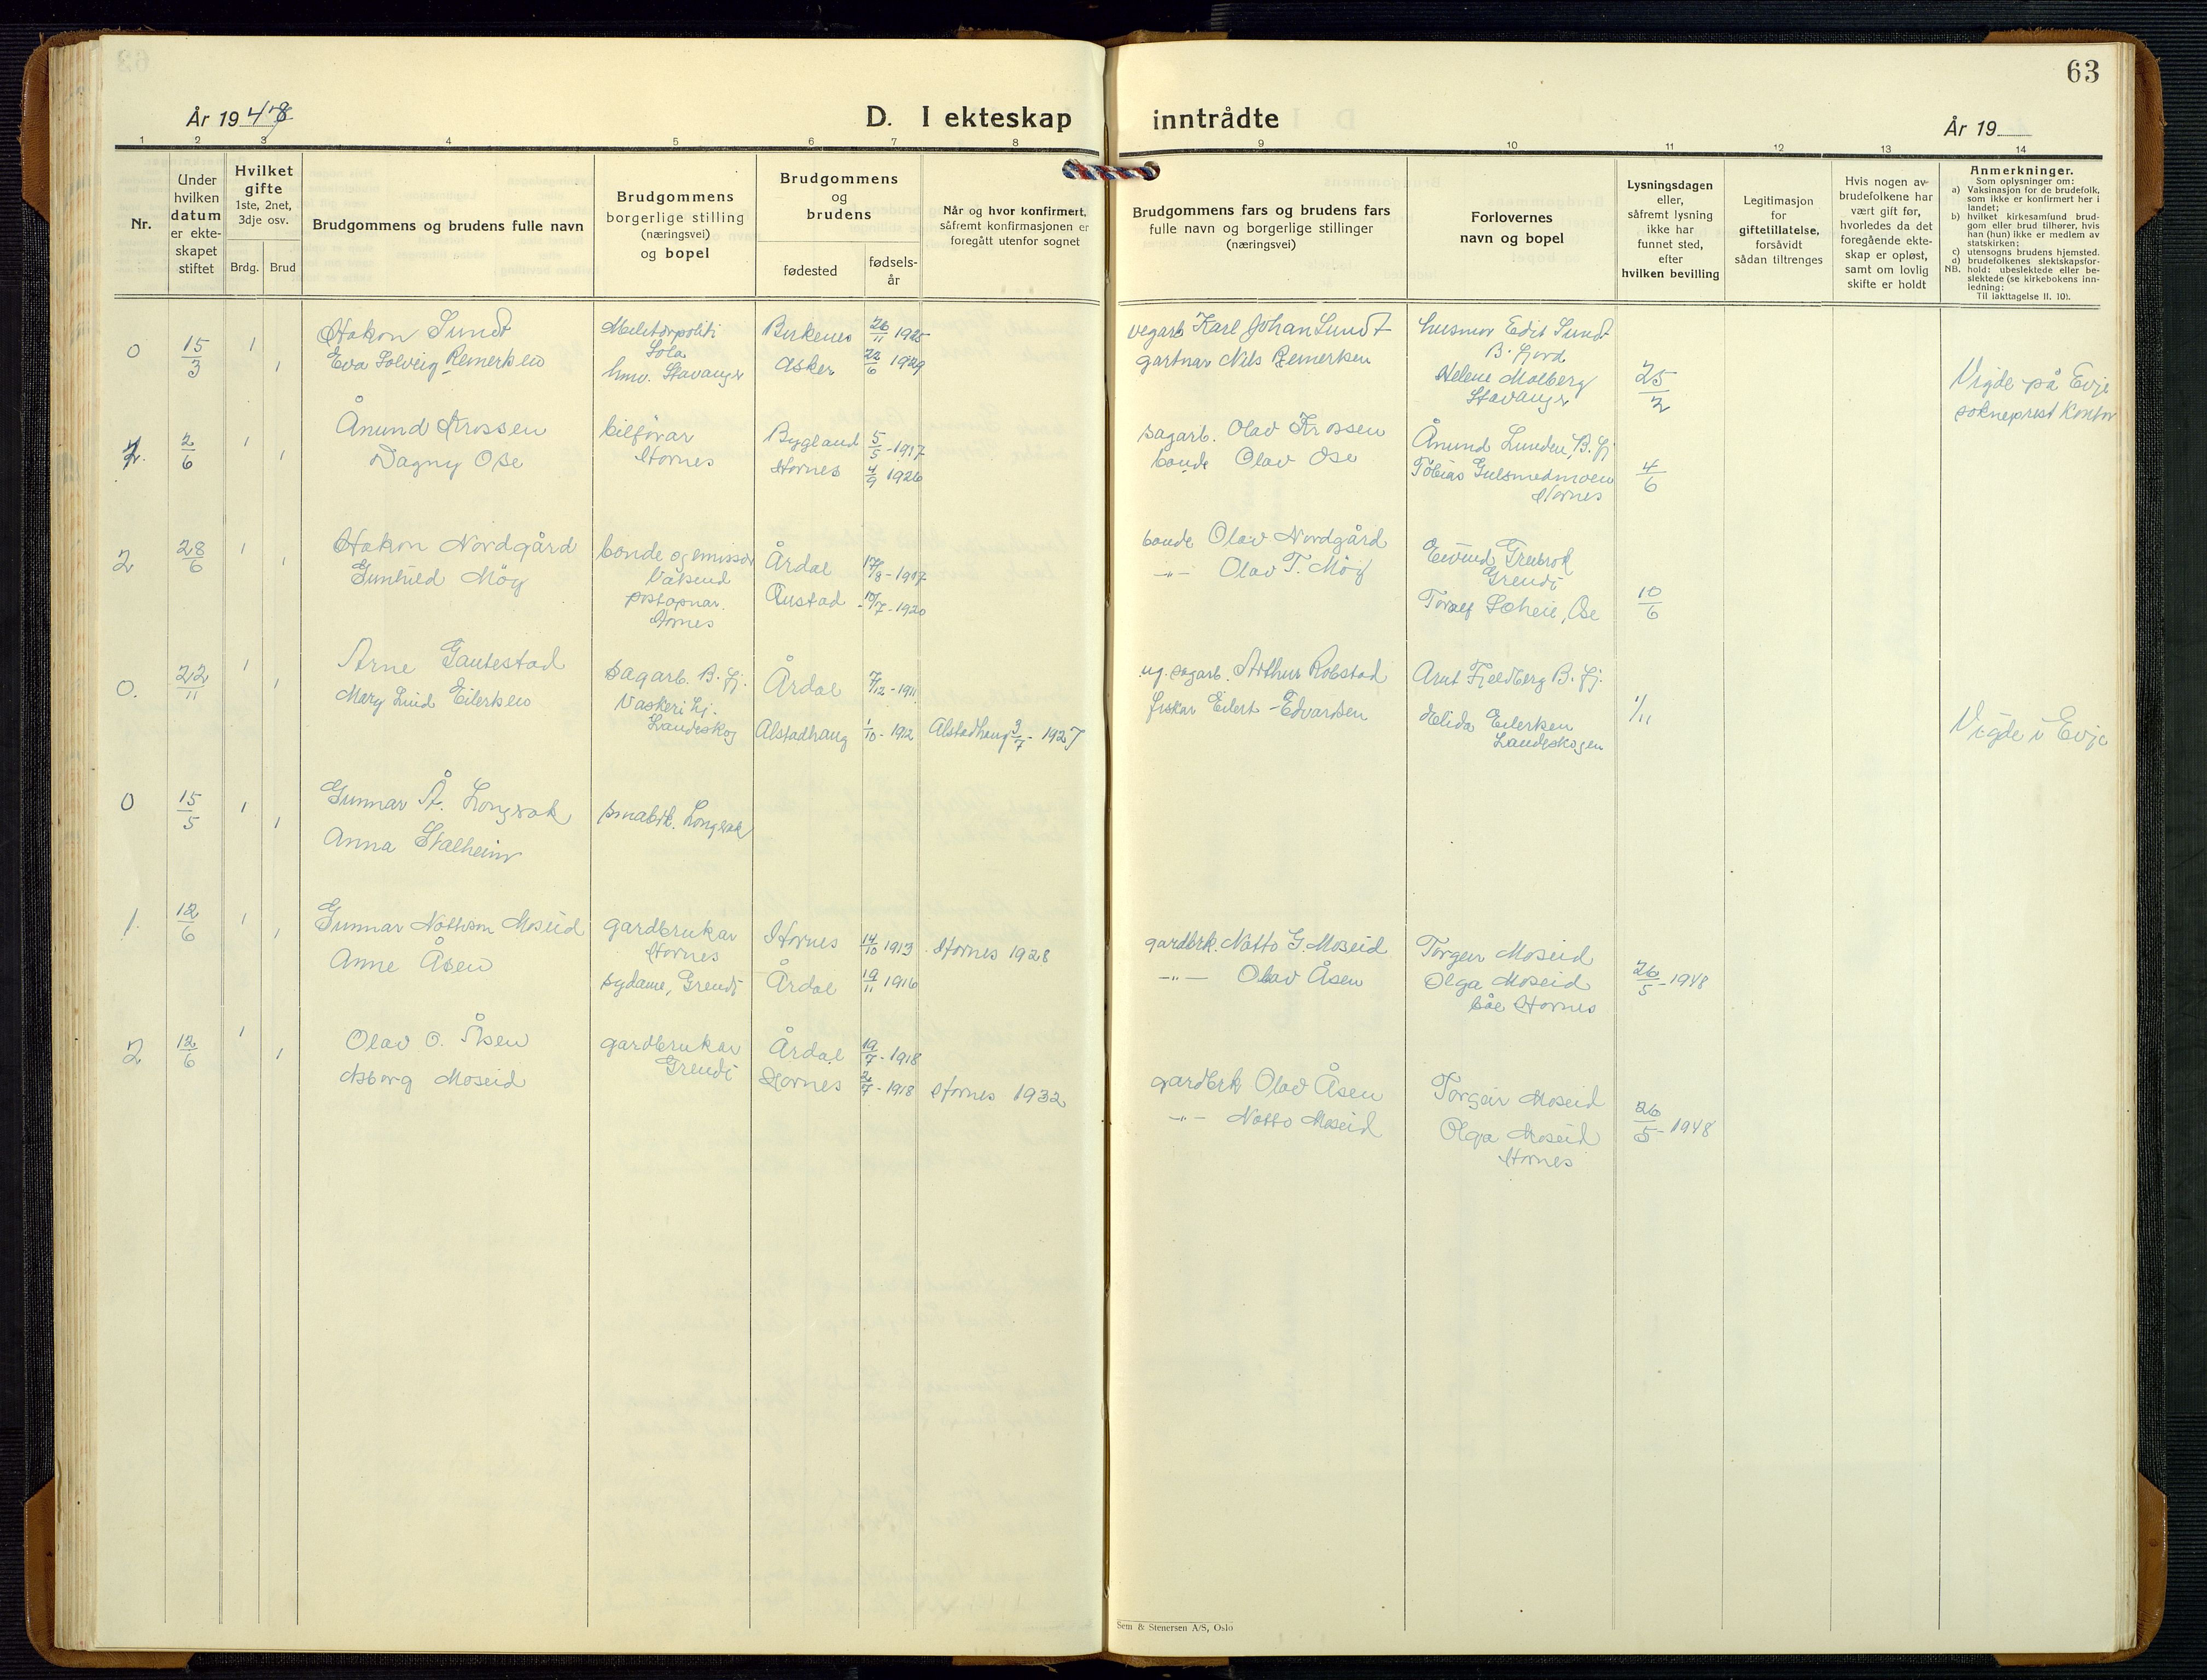 63
År 1948
D. I ekteskap inntrådte
År 19
1 2 3 4 5 6 7 8 9 10 11 12 13 14
Nr.
Under
hvilken
datum
er ekte-
skapet
stiftet
Hvilket
gifte
1ste, 2net,
3dje osv.
Brdg. Brud
Brudgommens og brudens fulle navn
Brudgommens
borgerlige stilling
(næringsvei)
og bopel
Brudgommens
og
brudens
fødested
fødsels-
år
Når og hvor konfirmert,
såfremt konfirmasjonen er
foregått utenfor sognet
Brudgommens fars og brudens fars
fulle navn og borgerlige stillinger
(næringsvei)
Forlovernes
navn og bopel
Lysningsdagen
eller,
såfremt lysning
ikke har
funnet sted,
efter
hvilken bevilling
Legitimasjon
for
giftetillatelse,
forsåvidt
sådan tiltrenges
Hvis nogen av
brudefolkene har
vært gift før,
hvorledes da det
foregående ekte-
skap er opløst,
samt om lovlig
skifte er holdt
Anmerkninger.
Som oplysninger om:
a) Vaksinasjon for de brudefolk,
som ikke er konfirmert her i
landet;
b) hvilket kirkesamfund brud-
gom eller brud tilhører, hvis
han (hun) ikke er medlem av
statskirken;
c) utensogns brudens hjemsted.
d) brudefolkenes slektskapsfor-
NB. hold: ubeslektede eller be-
slektede (se kirkebokens inn-
ledning:
Til iakttagelse II. 10).
0 15/3 1 Håkon Sundt Militærpoliti Birkenes 26/11 1925 vegarb Karl Johan Sundt husmor Edit Sundt
Sola B. fjord
1 Eva Solveig Reinertsen hmv. Stavanger Asker 22/6 1929 gartnar Nils Reinertsen Helene Molberg 25/2 Vigde på Evje
Stavanger sokneprest kontor
1. 2/6 1 Ånund Krossen bilførar Bygland 5/5-1917 sagarb. Olav Krossen Ånund Lunden, B. fj
1 Dagny Ose Hornes Hornes 4/9 1926 bonde Olav Ose Tobias Gulsmedmoen 4/6
Hornes
2 28/6 1 Håkon Nordgård bonde og emissær Årdal 17/8-1907 bonde Olav Nordgård Eivind Grubrok
Våsend Grendi
1 Gunhild Möy postopnar. Austad 10/7-1920 -"- Olav T. Möy Toralf Loheie, Ose 10/6
Hornes
0. 22/11 1 Arne Gautestad sagarb. B. fj. Årdal 7/12-1911 ug. sagarb. Arthur Robstad Arnt Fjeldberg B. fj.
1 Mary Lind Eilertsen Vaskeri hj. Landeskog Alstadhaug 1/10-1912 Alstadhaug 3/7-1927 fiskar Eilert Edvardsen Elida Eilertsen 1/11 Vigde i Evje
Landeskogen
0 15/5 1 Gunnar Å. Longrak småbrk. Longrak
1 Anna Stalheim
1. 12/6 1 Gunnar Nottson Moseid gardbrukar Hornes 14/10 1913 Hornes 1928 gardbrk. Notto G. Moseid Torgeir Moseid
Hornes
1 Anne Åsen sydame, Grendi Årdal 19/11 1916 -"- Olav Åsen Olga Moseid 26/5-1948
båe Hornes
2 12/6 1 Olav O. Åsen gardbrukar Årdal 19/7-1918 gardbrk Olav Åsen Torgeir Moseid
Grendi
1 Asborg Moseid Hornes 2/7-1918 Hornes 1932 -"- Notto Moseid Olga Moseid 26/5-1948
Hornes
Sem & Stenersen A/S, Oslo